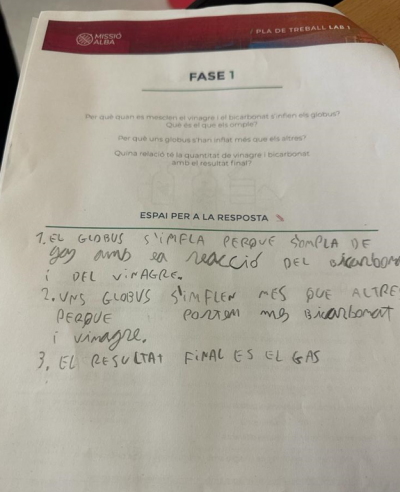 MISSIÓ
ALBA
PLA DE TREBALL LAB 1
FASE 1
Per què quan es mesclen el vinagre i el bicarbonat s'inflen els globus?
Què és el que els omple?
Per què uns globus s'han inflat més que els altres?
Quina relació té la quantitat de vinagre i bicarbonat
amb el resultat final?
ESPAI PER A LA RESPOSTA
1. EL GLOBUS S'IMFLA PERQUE S'OMPLA DE
gas amb la reacció DEL bicarbon
i DEL viNAGRE.
2. UNS GLOBUS S'IMFLEN MES QUE ALTRE
PERQUE PORTEM mes Bicarbonat
i vinagre.
3, EL RESULTAT FINAL ES EL GAS